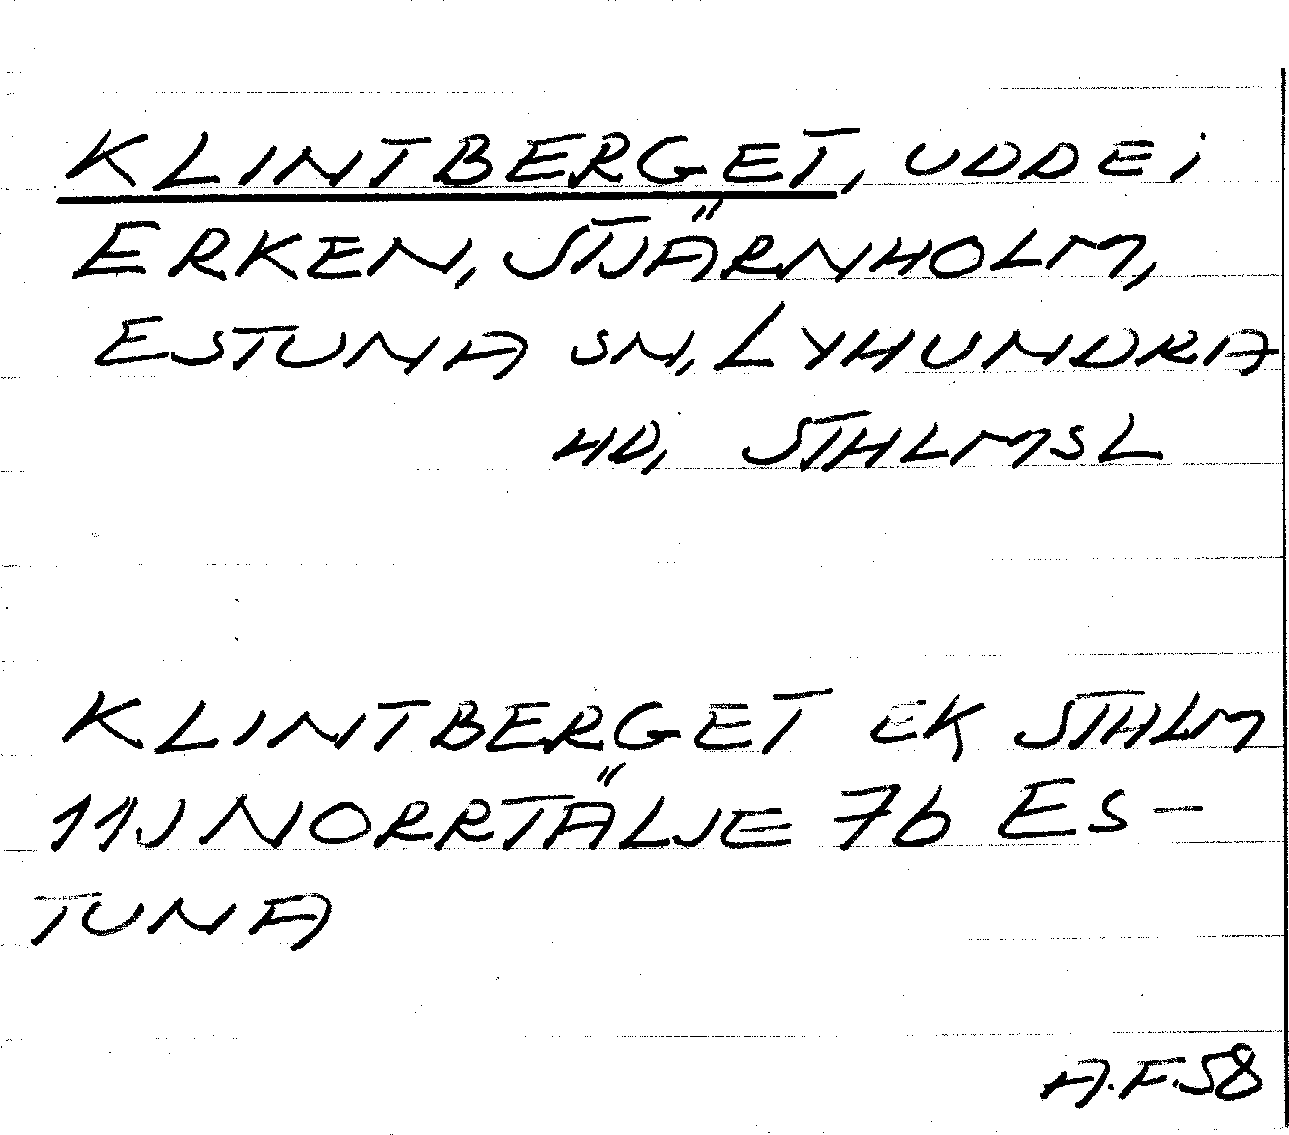 KLINTBERGET, UDDE i
ERKEN, STJÄRNHOLM,
ESTUNA SN, LYHUNDRA
HD, STHLMSL
KLINTBERGET EK STHLM
11J NORRTÄLJE 7b ES-
TUNA
A.F.58